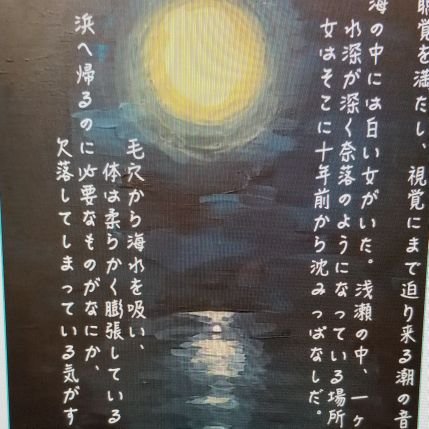 聴覚を満たし、視覚にまで迫り来る潮の音
海の中には白い女がいた。浅瀬の中、一ヶ
水深が深く奈落のようになっている場所
女はそこに十年前から沈みっぱなしだ。
毛穴から海水を吸い、
体は柔らかく膨張している
浜へ帰るのに必要なものがなにか、
欠落してしまっている気がす